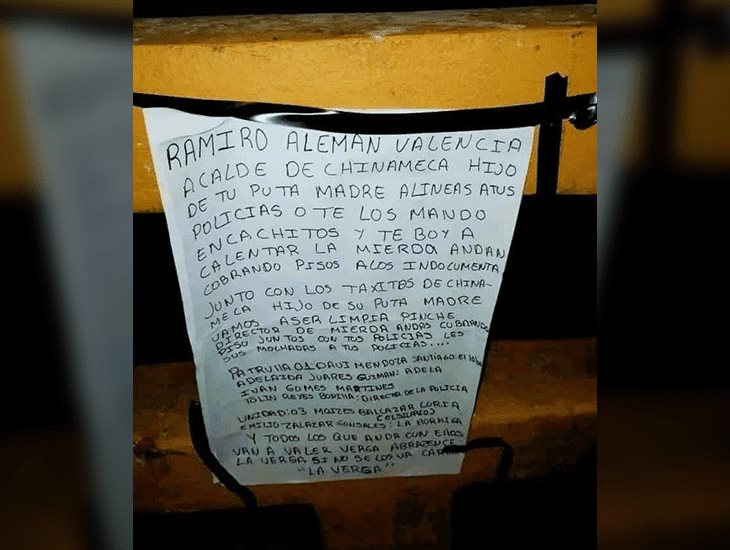 RAMIRO ALEMAN VALENCIA
ACALDE DE CHINAMECA HIJO
DE TU PUTA MADRE ALINEAS ATUS
POLICIAS O TE LOS MANDO
ENCACHITOS Y TE BOY A
CALENTAR LA MIERDA ANDAN
COBRANDO PISOS ALOS INDOCUMENTA
JUNTO CON LOS TAXITAS DE CHINA-
MECA HIJO DE SU PUTA MADRE
VAMOS ASER LIMPIA PINCHE
DIRECTOR DE MIERDA ANDAS COBRANDO
PISO JUNTOS CON TUS POLICIAS LES
SUS MOLHADAS A TUS POLICIAS....
PATRULLA 01 DAVI MENDOZA SANTIAGO: El
ADELAIDA JUARES GUZMAN: ADELA
IVAN GOMES MARTINES
REYES BONILLA: DIRECTOR DE LA POLICIA
UNIDAD: 03 MOIZES BALCAZAR LORIA
EMILIO ZALAZAR GONSALES: LA HORMIGA
Y TODOS LOS QUE ANDA CON ELLOS
VAN A VALER VERGA ABRAZENCE
LA VERGA SI NO SE LOS VA
"LA VERGA"